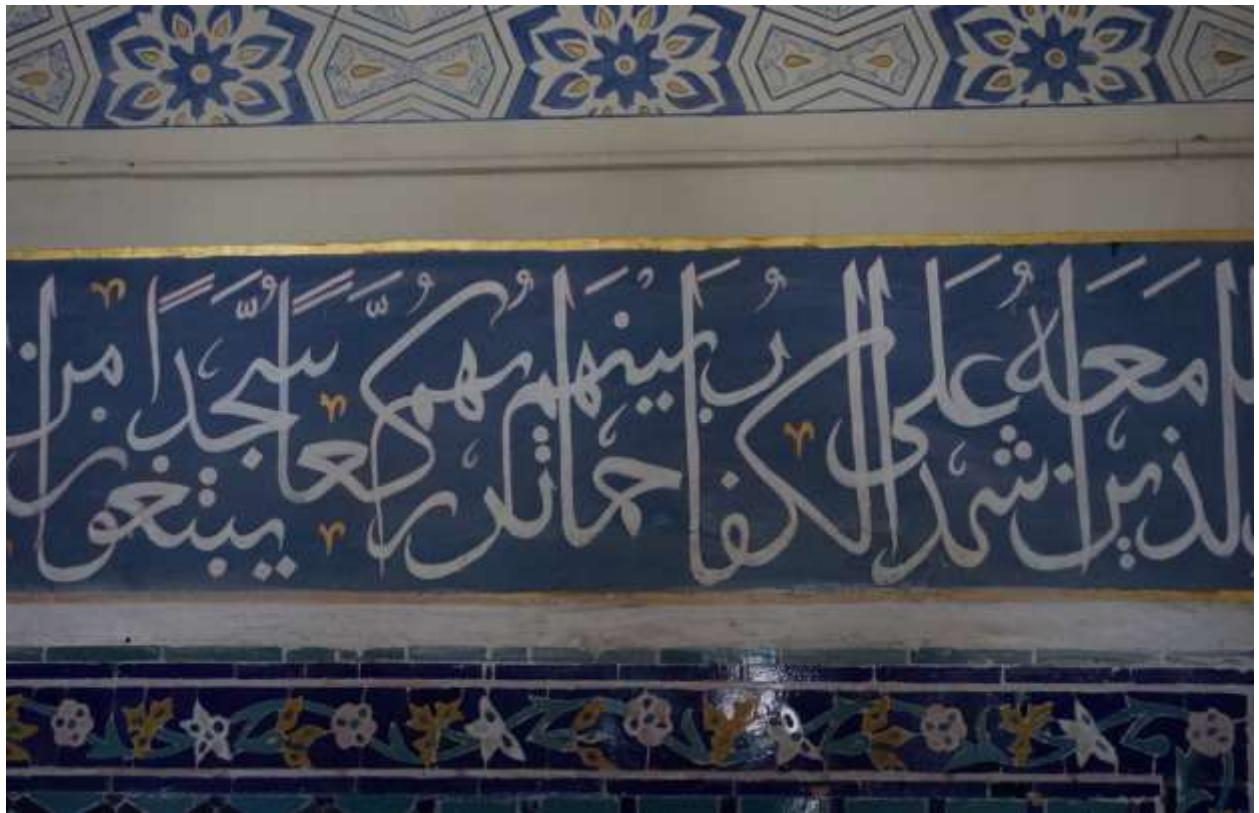 الذين معه اشداء على الكفار رحماء بينهم ترىهم ركعًا سجدًا يبتغون من